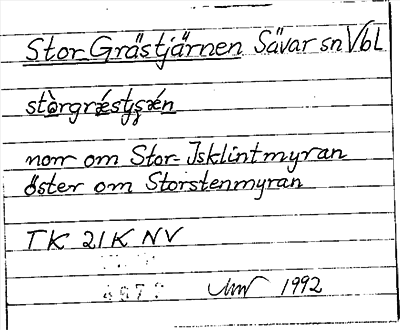 Stor Grästjärnen Sävar sn Vbl
norr om Stor-Isklintmyran
öster om Storstenmyran
TK 21K NV
1992